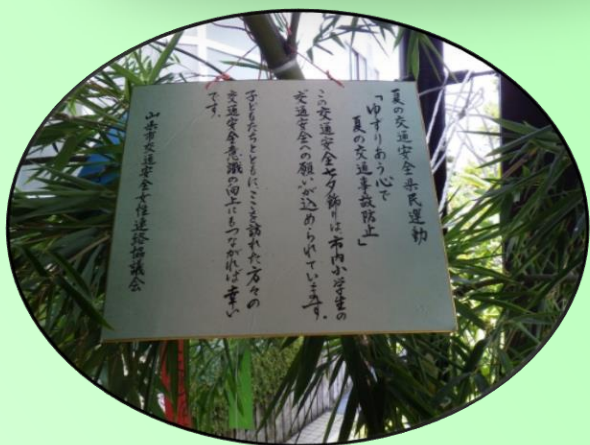 夏の交通安全県民運動
「ゆずりあう心で
夏の交通事故防止」
この交通安全七夕飾りは、市内小学生の
交通安全への願いが込められています。
子どもたちとともに、ここを訪れた方々の
交通安全意識の向上にもつながれば幸い
です。
山県市交通安全女性連絡協議会